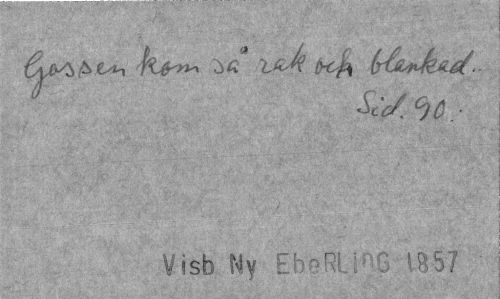 Gossen kom så rak och blankad..
Sid. 90.
Visb Ny EbeRLinG 1857